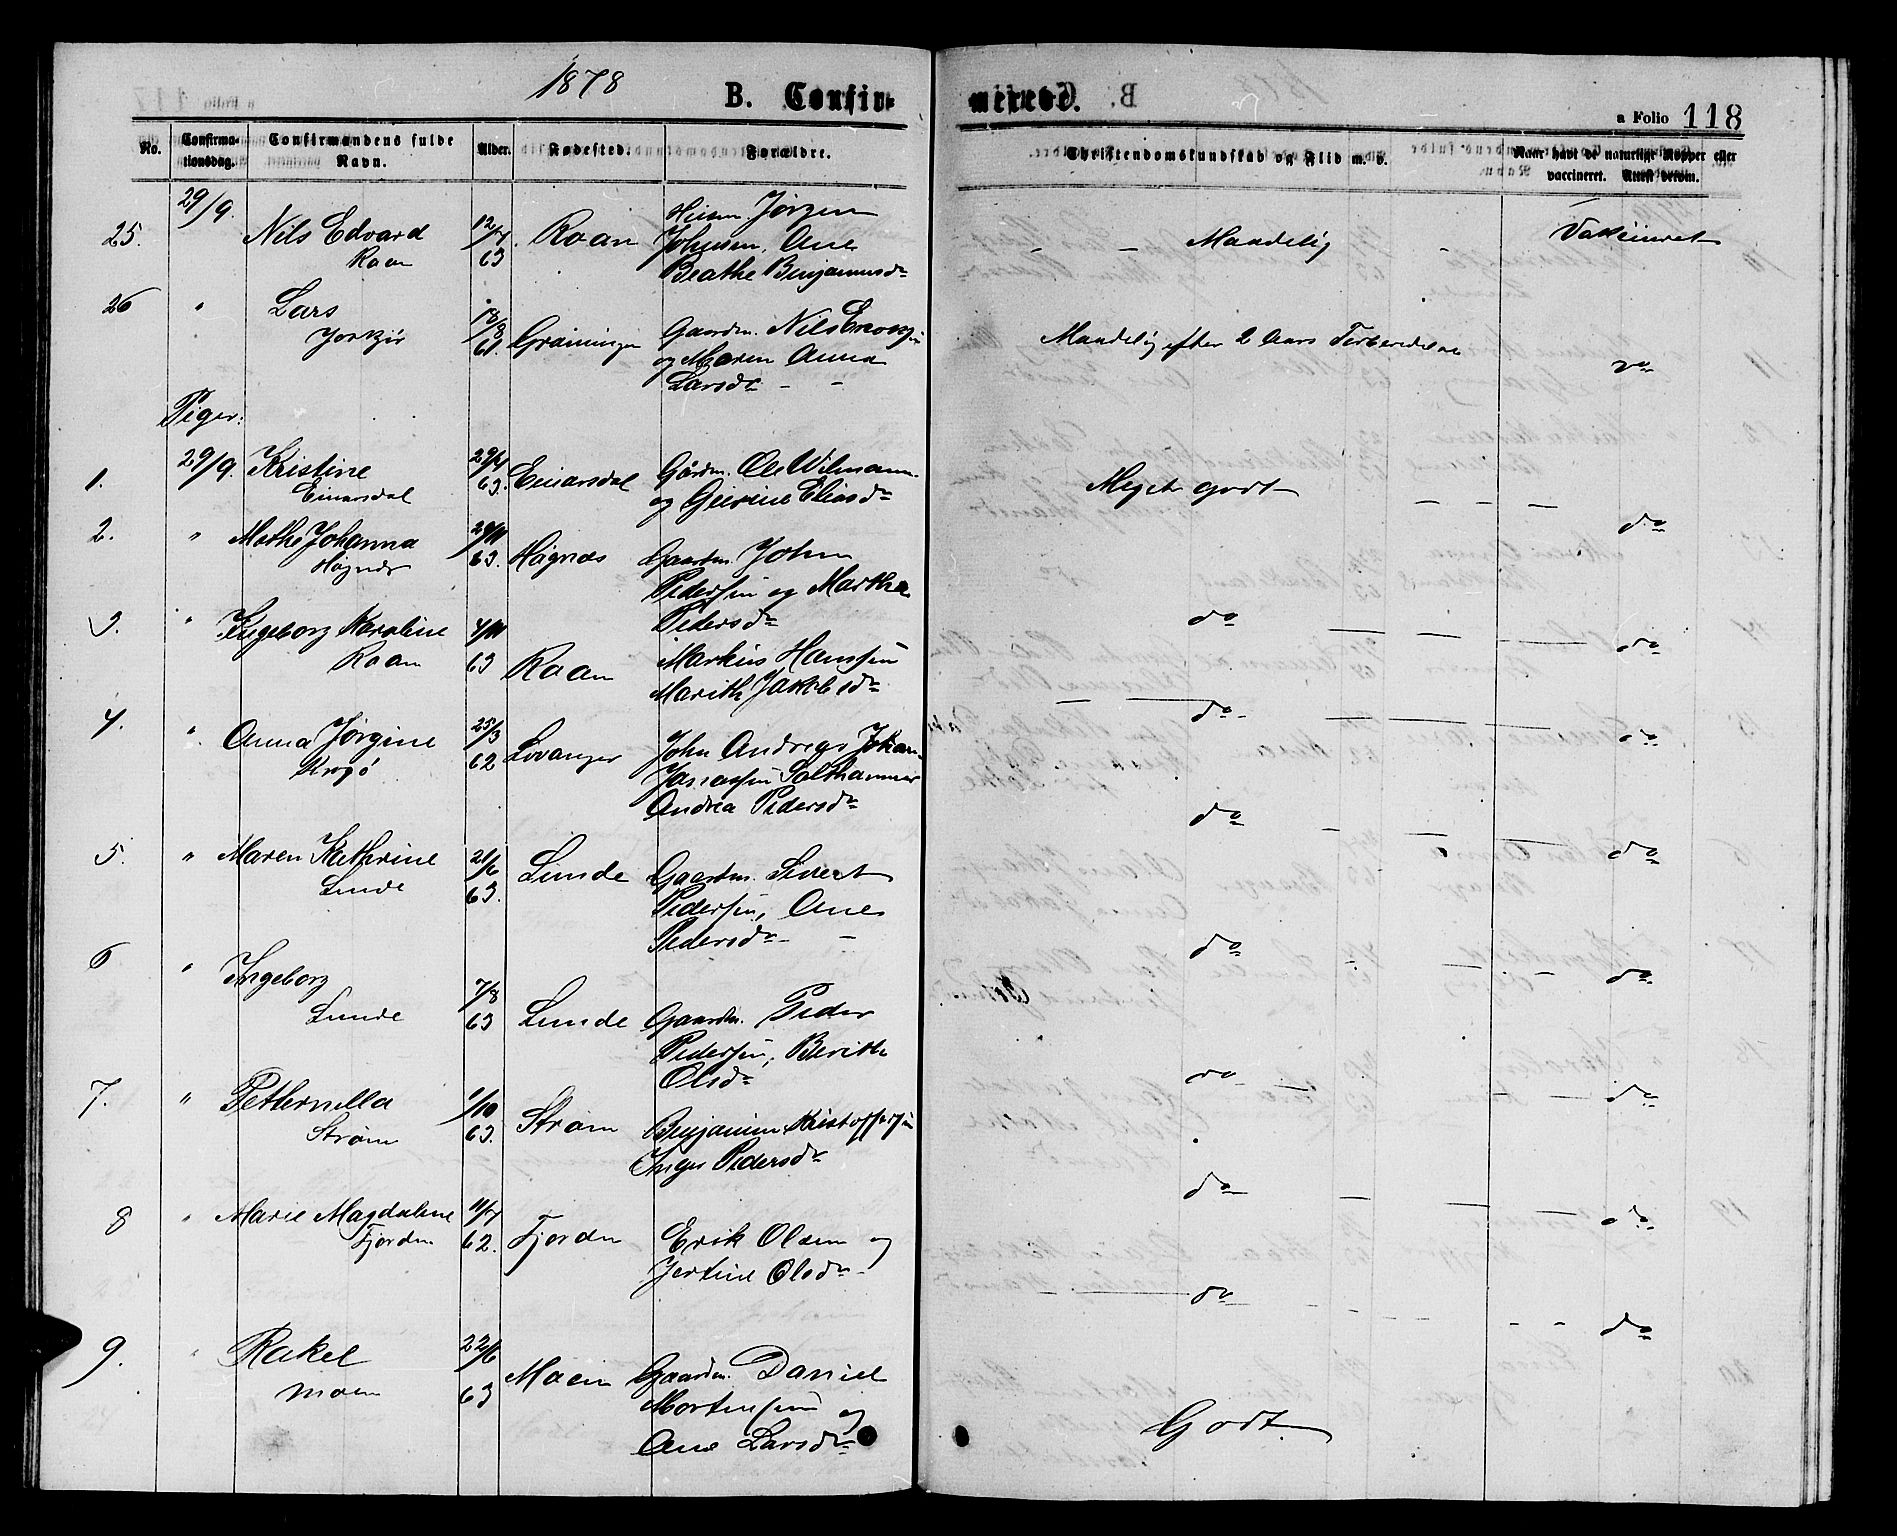 1878
B. Confirmerede.
a Folio 118
No. Confirmationsdag. Confirmandens fulde Navn. Alder. Fødested. Forældre. Christendomskundskab og Flid m. v. Naar havt de naturlige Kopper eller vaccineret. Attest derom.
29/9.
25. Nils Edvard 12/4 Roan Jørgen
Roan 63 Johnsen, Ane
Beathe Benjaminsdr
Maadelig Vaksineret
26 " Lars 18/3 Gaardm. Nils
61. og Maren Anna
Larsdr - -
Maadelig efter 2 Aars Forberedelse
do
Piger:
1. 29/9. Kristine 29/4 Einarsdal Gårdm. Ole
Einarsdal 63. og Eliasdr
Meget godt - - -
do
2. " Johanna 63. Høgnes Gaardm. John
Høgnes Pedersen og Martha
Pedersdr
do - - - do
3. " Ingeborg Karoline Roan Markus Hanssen
Roan 63 Marith Jakobsdr
do - - - do
4. " Anna Jørgine 25/3 Levanger John Andreas Johan
62 Salthammer
Andrea Pedersdr
do - - - do
5. " Maren Kathrine 21/6 Lunde Gaardm. Sivert
Lunde 63. Pedersen, Ane
Pedersdr - -
do - - - do
6 " Ingeborg 7/8 Lunde Gaardm. Peder
Lunde 63 Pedersen, Berith
Olsdr
do - - do
7. " Petternella 1/10 Strøm Benjamin Kristoffersen
Strøm 63. Inger Pedersdr
do - - do
8 " Marie Magdalene 11/4 Fjorden Erik Olsen og
Fjorden 62. Olsdr -
do - - do
9. " Rakel 22/6 Moen Gaardm. Daniel
Moen 63 Mortensen og
Ane Larsdr
Godt